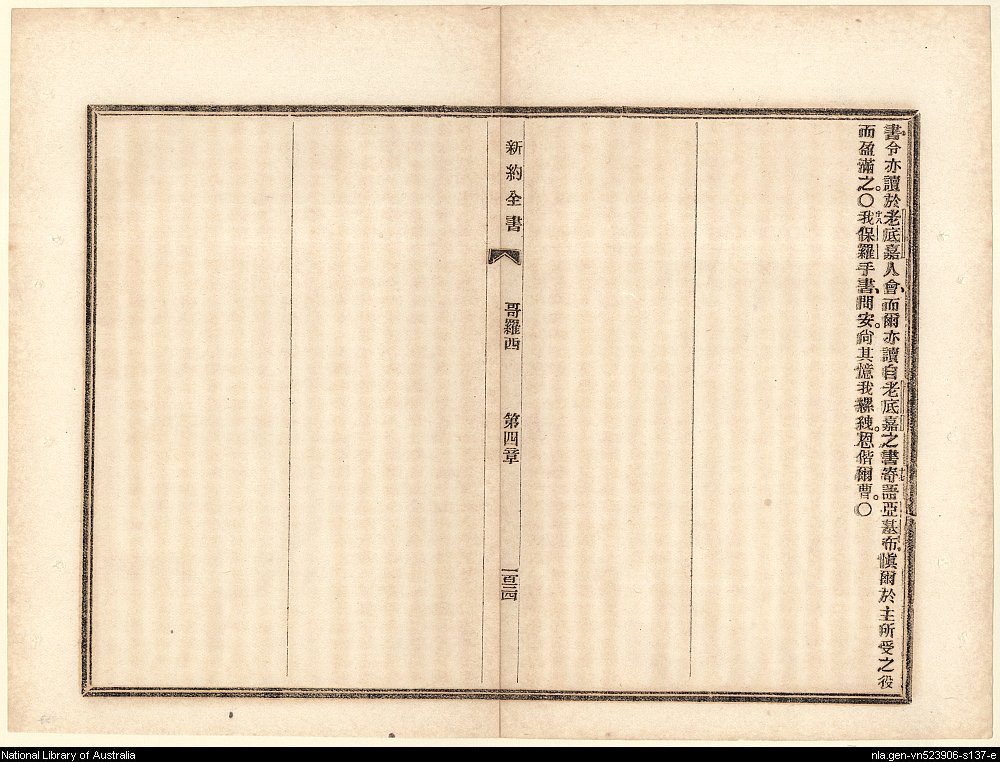 書令亦讀於老底嘉人會、而爾亦讀自老底嘉之書。十七寄語亞基布、愼爾於主所受之役
而盈滿之。〇十八我保羅手書問安。尙其憶我縲絏。恩偕爾曹。〇
新約全書
哥羅西
第四章
一百二四
National Library of Australia
nla.gen-vn523906-s137-e